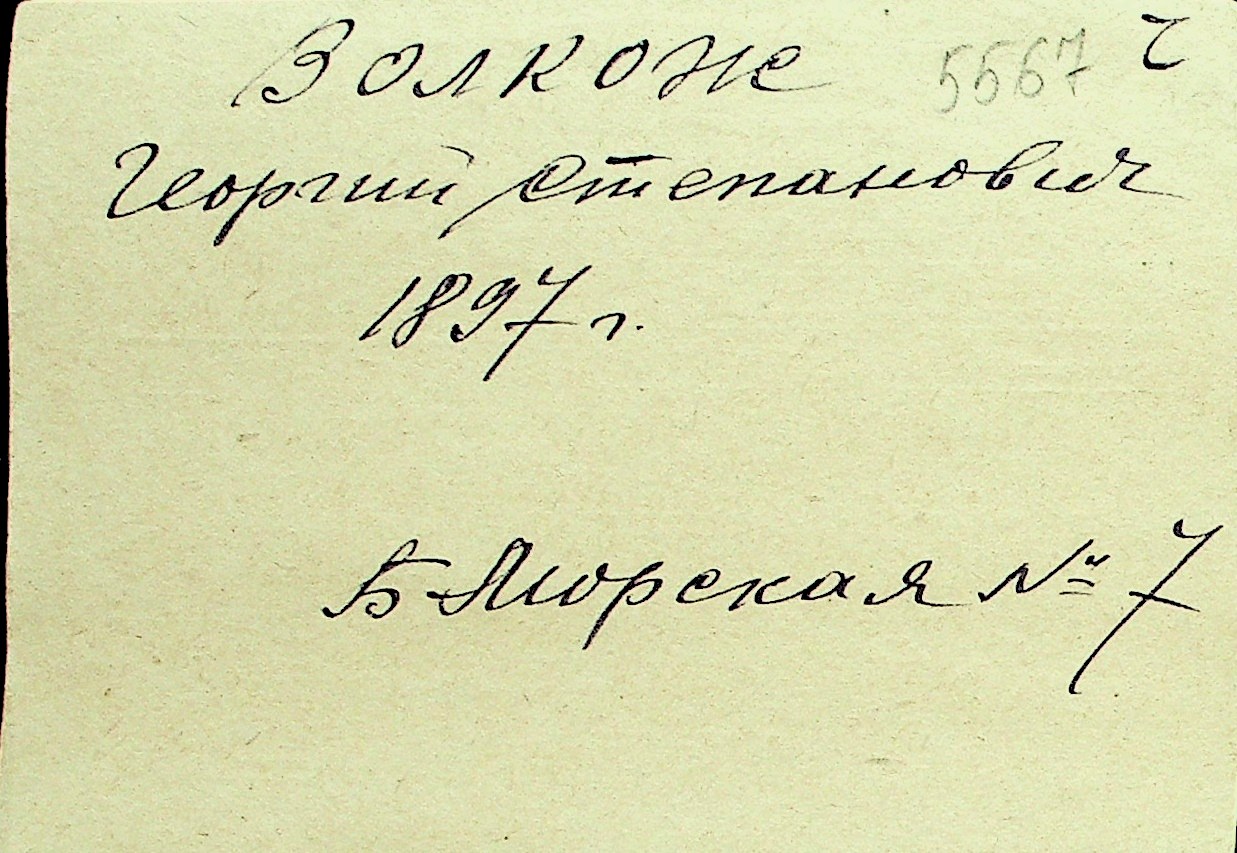 Волкож 5567 ч
Георгий Степанович
1897 г.
Б-Морская № 7